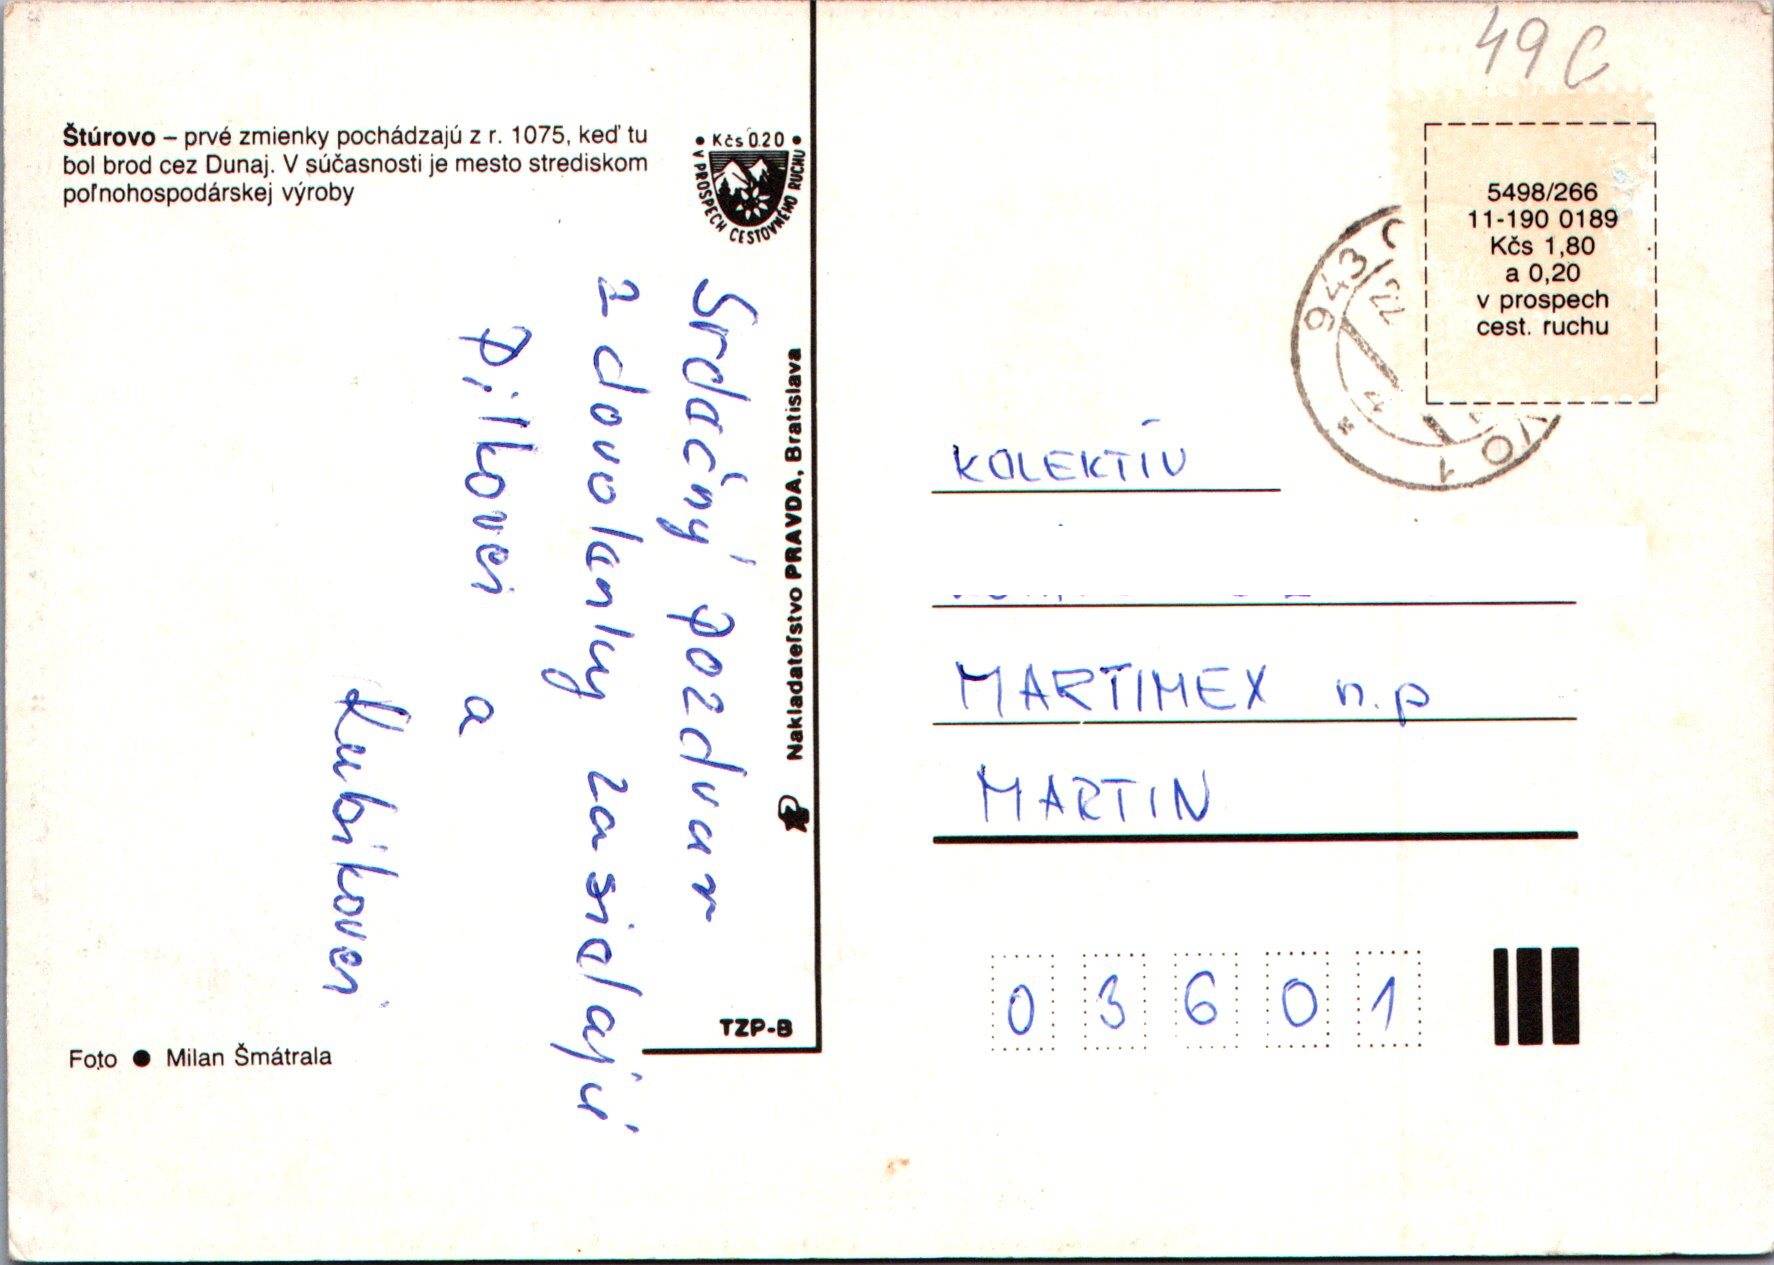 49 C
Štúrovo – prvé zmienky pochádzajú z r. 1075, keď tu
bol brod cez Dunaj. V súčasnosti je mesto strediskom
poľnohospodárskej výroby
• Kčs 0.20 •
V PROSPECH CESTOVNÉHO RUCHU
Srdečný pozdvur
z dovolanky zasielajú
Pilkovci a
Kubikovci
Nakladateľstvo PRAVDA, Bratislava
TZP-B
Foto ● Milan Šmátrala
5498/266
11-190 0189
Kčs 1,80
a 0,20
v prospech
cest. ruchu
943
VO 1
KOLEKTÍV
MARTIMEX n.p
MARTIN
03601